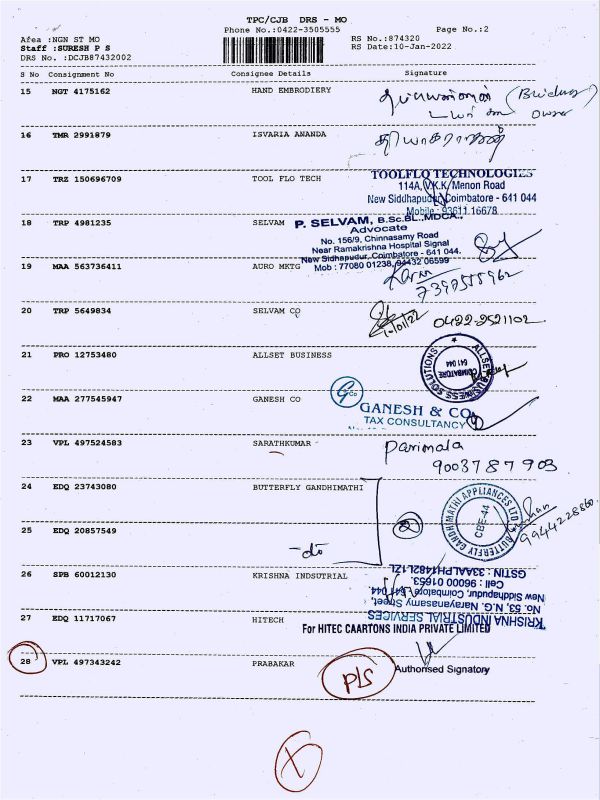 TPC/CJB DRS - MO
Phone No.:0422-3505555
Page No.:2
Area :NGN ST MO
Staff :SURESH P S
DRS No. :DCJB87432002
RS No.:874320
RS Date:10-Jan-2022
S No Consignment No Consignee Details Signature
15 NGT 4175162 HAND EMBRODIERY
owner
16 TMR 2991879 ISVARIA ANANDA தியாகராஜன்
17 TRZ 150696709 TOOL FLO TECH
TOOLFLO TECHNOLOGIES
114A, V.K.K. Menon Road
New Siddhapudur, Coimbatore - 641 044
Mobile : 93611 16678
18 TRP 4981235 SELVAM
P. SELVAM, B.Sc.BL.,MDCA.,
Advocate
No. 156/9, Chinnasamy Road
Near Ramakrishna Hospital Signal
New Sidhapudur, Coimbatore - 641 044.
Mob : 77080 01238, 94432 06599
19 MAA 563736411 AURO MKTG
20 TRP 5649834 SELVAM CO
0422-2521102
21 PRO 12753480 ALLSET BUSINESS
ALLSET BUSINESS SOLUTIONS
COIMBATORE
641 044
22 MAA 277545947 GANESH CO
GCo
GANESH & CO
TAX CONSULTANCY
23 VPL 497524583 SARATHKUMAR Parimala
9003787903
24 EDQ 23743080 BUTTERFLY GANDHIMATHI
2
BUTTERFLY GANDHIMATHI APPLIANCES LTD
CBE-44
9944228860
25 EDQ 20857549 -do
26 SPB 60012130 KRISHNA INDSUTRIAL
KRISHNA INDUSTRIAL SERVICES
No. 53, N.G. Narayanasamy Street,
New Siddhapudur, Coimbatore - 641 044.
Cell : 96000 01653
GSTIN : 33AALPH1482L1ZL
27 EDQ 11717067 HITECH
For HITEC CAARTONS INDIA PRIVATE LIMITED
Authorised Signatory
28 VPL 497343242 PRABAKAR P/S